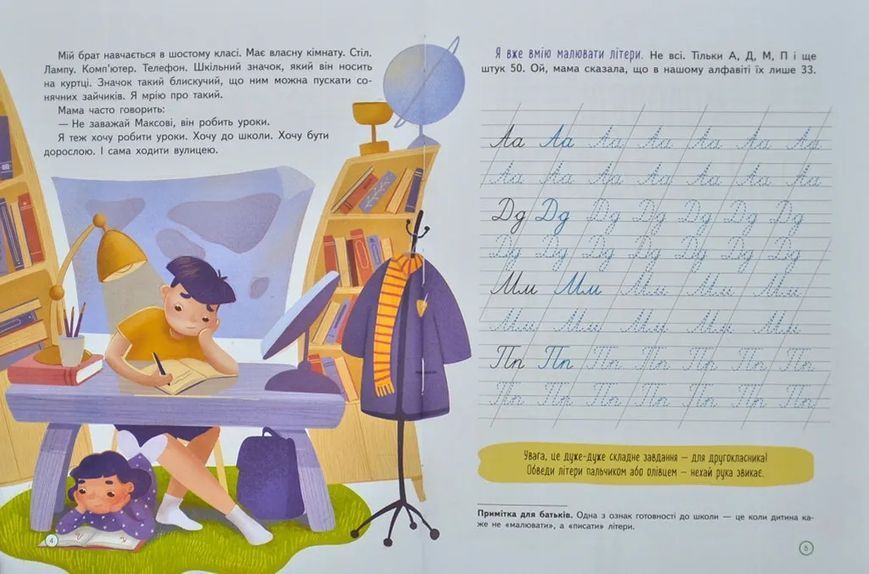 Мій брат навчається в шостому класі. Має власну кімнату. Стіл.
Лампу. Комп'ютер. Телефон. Шкільний значок, який він носить
на куртці. Значок такий блискучий, що ним можна пускати со-
нячних зайчиків. Я мрію про такий.
Мама часто говорить:
— Не заважай Максові, він робить уроки.
Я теж хочу робити уроки. Хочу до школи. Хочу бути
дорослою. І сама ходити вулицею.
4
Я вже вмію малювати літери. Не всі. Тільки А, Д, М, П і ще
штук 50. Ой, мама сказала, що в нашому алфавіті їх лише 33.
Аа Аа Аа Аа Аа Аа Аа
Аа Аа Аа Аа Аа Аа Аа
Дд Дд Дд Дд Дд Дд Дд
Дд Дд Дд Дд Дд Дд Дд
Мм Мм Мм Мм Мм
Мм Мм Мм Мм Мм
Пп Пп Пп Пп Пп Пп Пп
Пп Пп Пп Пп Пп Пп Пп
Увага, це дуже-дуже складне завдання — для другокласника!
Обведи літери пальчиком або олівцем — нехай рука звикає.
Примітка для батьків. Одна з ознак готовності до школи — це коли дитина ка-
же не «малювати», а «писати» літери.
5